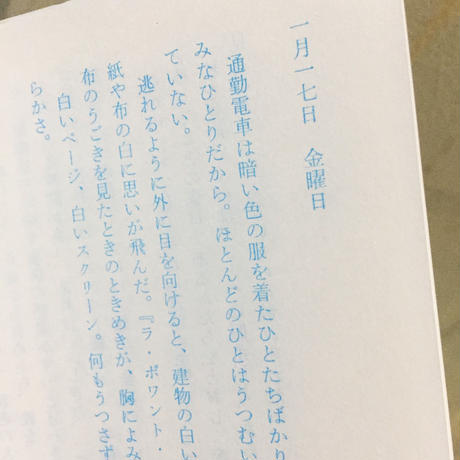 一月一七日　金曜日
通勤電車は暗い色の服を着たひとたちばかり
みなひとりだから。ほとんどのひとはうつむい
ていない。
逃れるように外に目を向けると、建物の白い
紙や布の白に思いが飛んだ。『ラ・ポワント・
布のうごきを見たときのときめきが、胸によみ
白いページ、白いスクリーン。何もうつさず
らかさ。